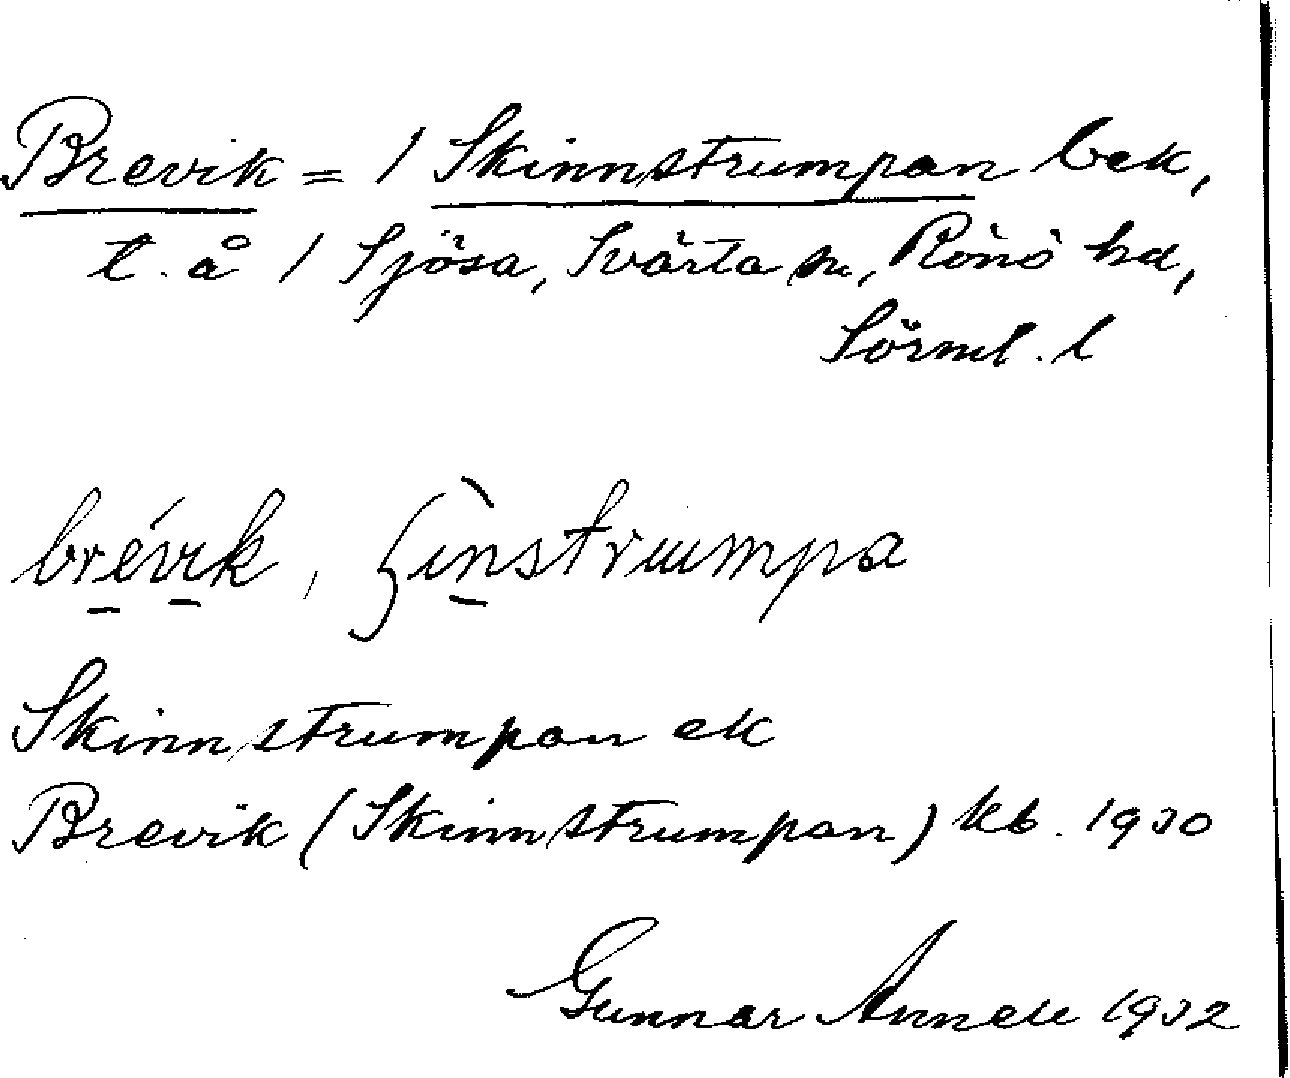 Brevik = / Skinnstrumpan bek,
t. å / Sjösa, Svärta sn, Rönö hd,
Sörml. l
brévik, ʃìnstrumpa
Skinnstrumpan ek
Brevik (Skinnstrumpan) kb. 1930
Gunnar 1932